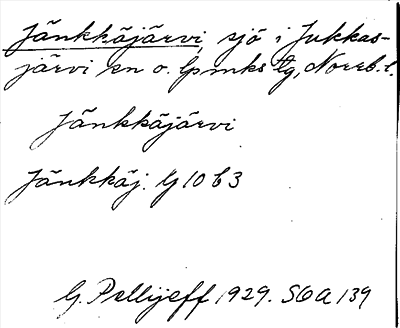 Jänkkäjärvi, sjö i Jukkas-
järvi sn o. lpmks tg, Norrb. l.
Jänkkäjärvi
Jänkkäj. Lg 10 b 3
G. Pellijeff 1929. SOA 139